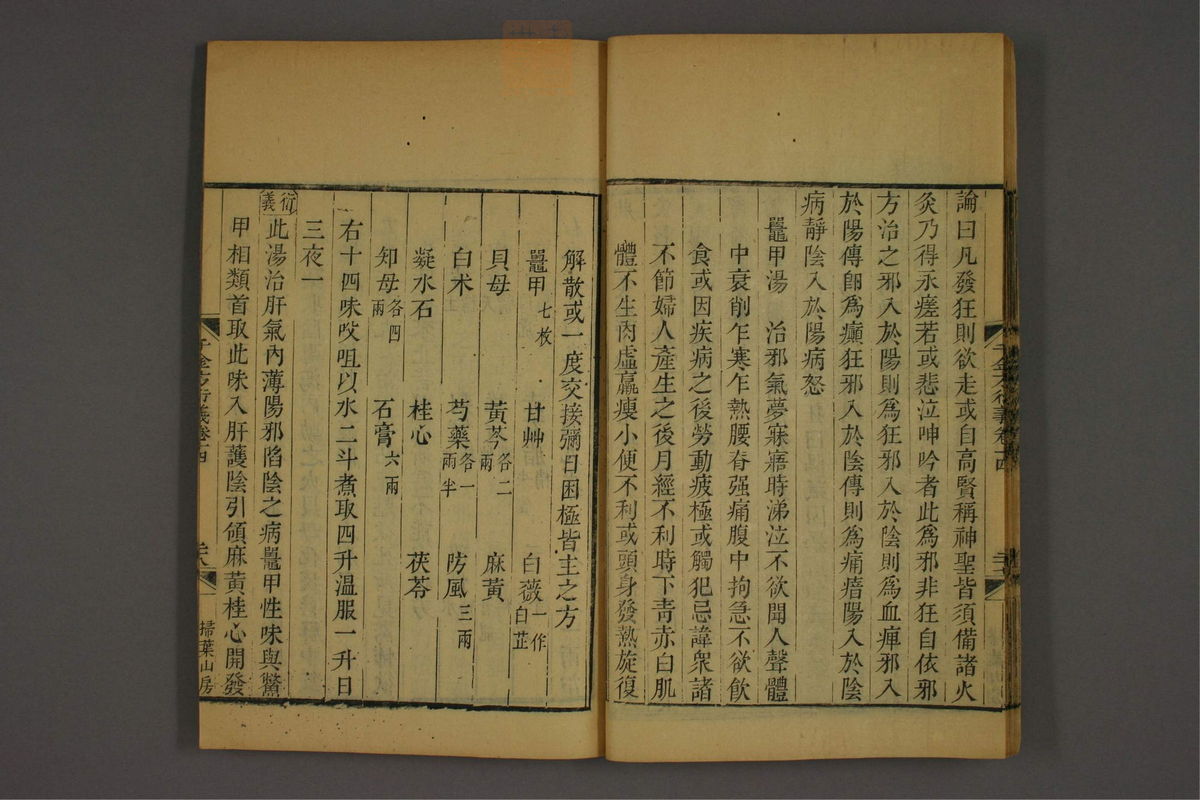 論曰凡發狂則欲走或自高賢稱神聖皆須備諸火
灸乃得永瘥若或悲泣呻吟者此爲邪非狂自依邪
方治之邪入於陽則爲狂邪入於陰則爲血痺邪入
於陽傳卽爲癲狂邪入於陰傳則爲痛瘖陽入於陰
病靜陰入於陽病怒
鼉甲湯 治邪氣夢寐寤時涕泣不欲聞人聲體
中衰削乍寒乍熱腰脊强痛腹中拘急不欲飲
食或因疾病之後勞動疲極或觸犯忌諱衆諸
不節婦人產生之後月經不利時下青赤白肌
體不生肉虛羸瘦小便不利或頭身發熱旋復
解散或一度交接彌日困極皆主之方
鼉甲七枚 甘艸 白薇一作白芷
貝母 黃芩各二兩 麻黃
白朮 芍藥各一兩半 防風三兩
凝水石 桂心 茯苓
知母各四兩 石膏六兩
右十四味㕮咀以水二斗煮取四升溫服一升日
三夜一
衍義
此湯治肝氣內薄陽邪陷陰之病鼉甲性味與鱉
甲相類首取此味入肝護陰引領麻黃桂心開發
千金方衍義卷十四
掃葉山房